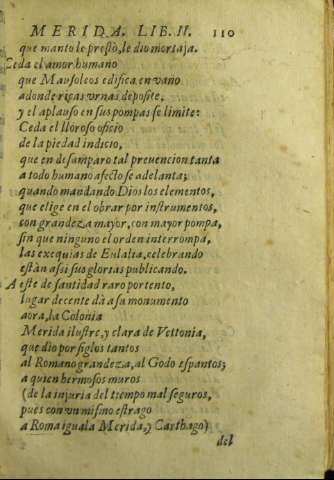 MERIDA. LIB. II. 110
que manto le prestò, le dio mortaja.
Ceda el amor humano
que Mausoleos edifica en vano
adonde ricas vrnas deposite,
y el aplauso en sus pompas se limite:
Ceda el lloroso oficio
de la piedad indicio,
que en desamparo tal preuencion tanta
a todo humano afecto se adelanta;
quando mandando Dios los elementos,
que elige en el obrar por instrumentos,
con grandeza mayor, con mayor pompa,
sin que ninguno el orden interrompa,
las exequias de Eulalia, celebrando
estàn assi sus glorias publicando.
A este de santidad raro portento,
lugar decente dà a su monumento
aora, la Colonia
Merida ilustre, y clara de Vettonia,
que dio por siglos tantos
al Romano grandeza, al Godo espantos;
a quien hermosos muros
(de la injuria del tiempo mal seguros,
pues con vn mismo estrago
a Roma iguala Merida, y Carthago)
del